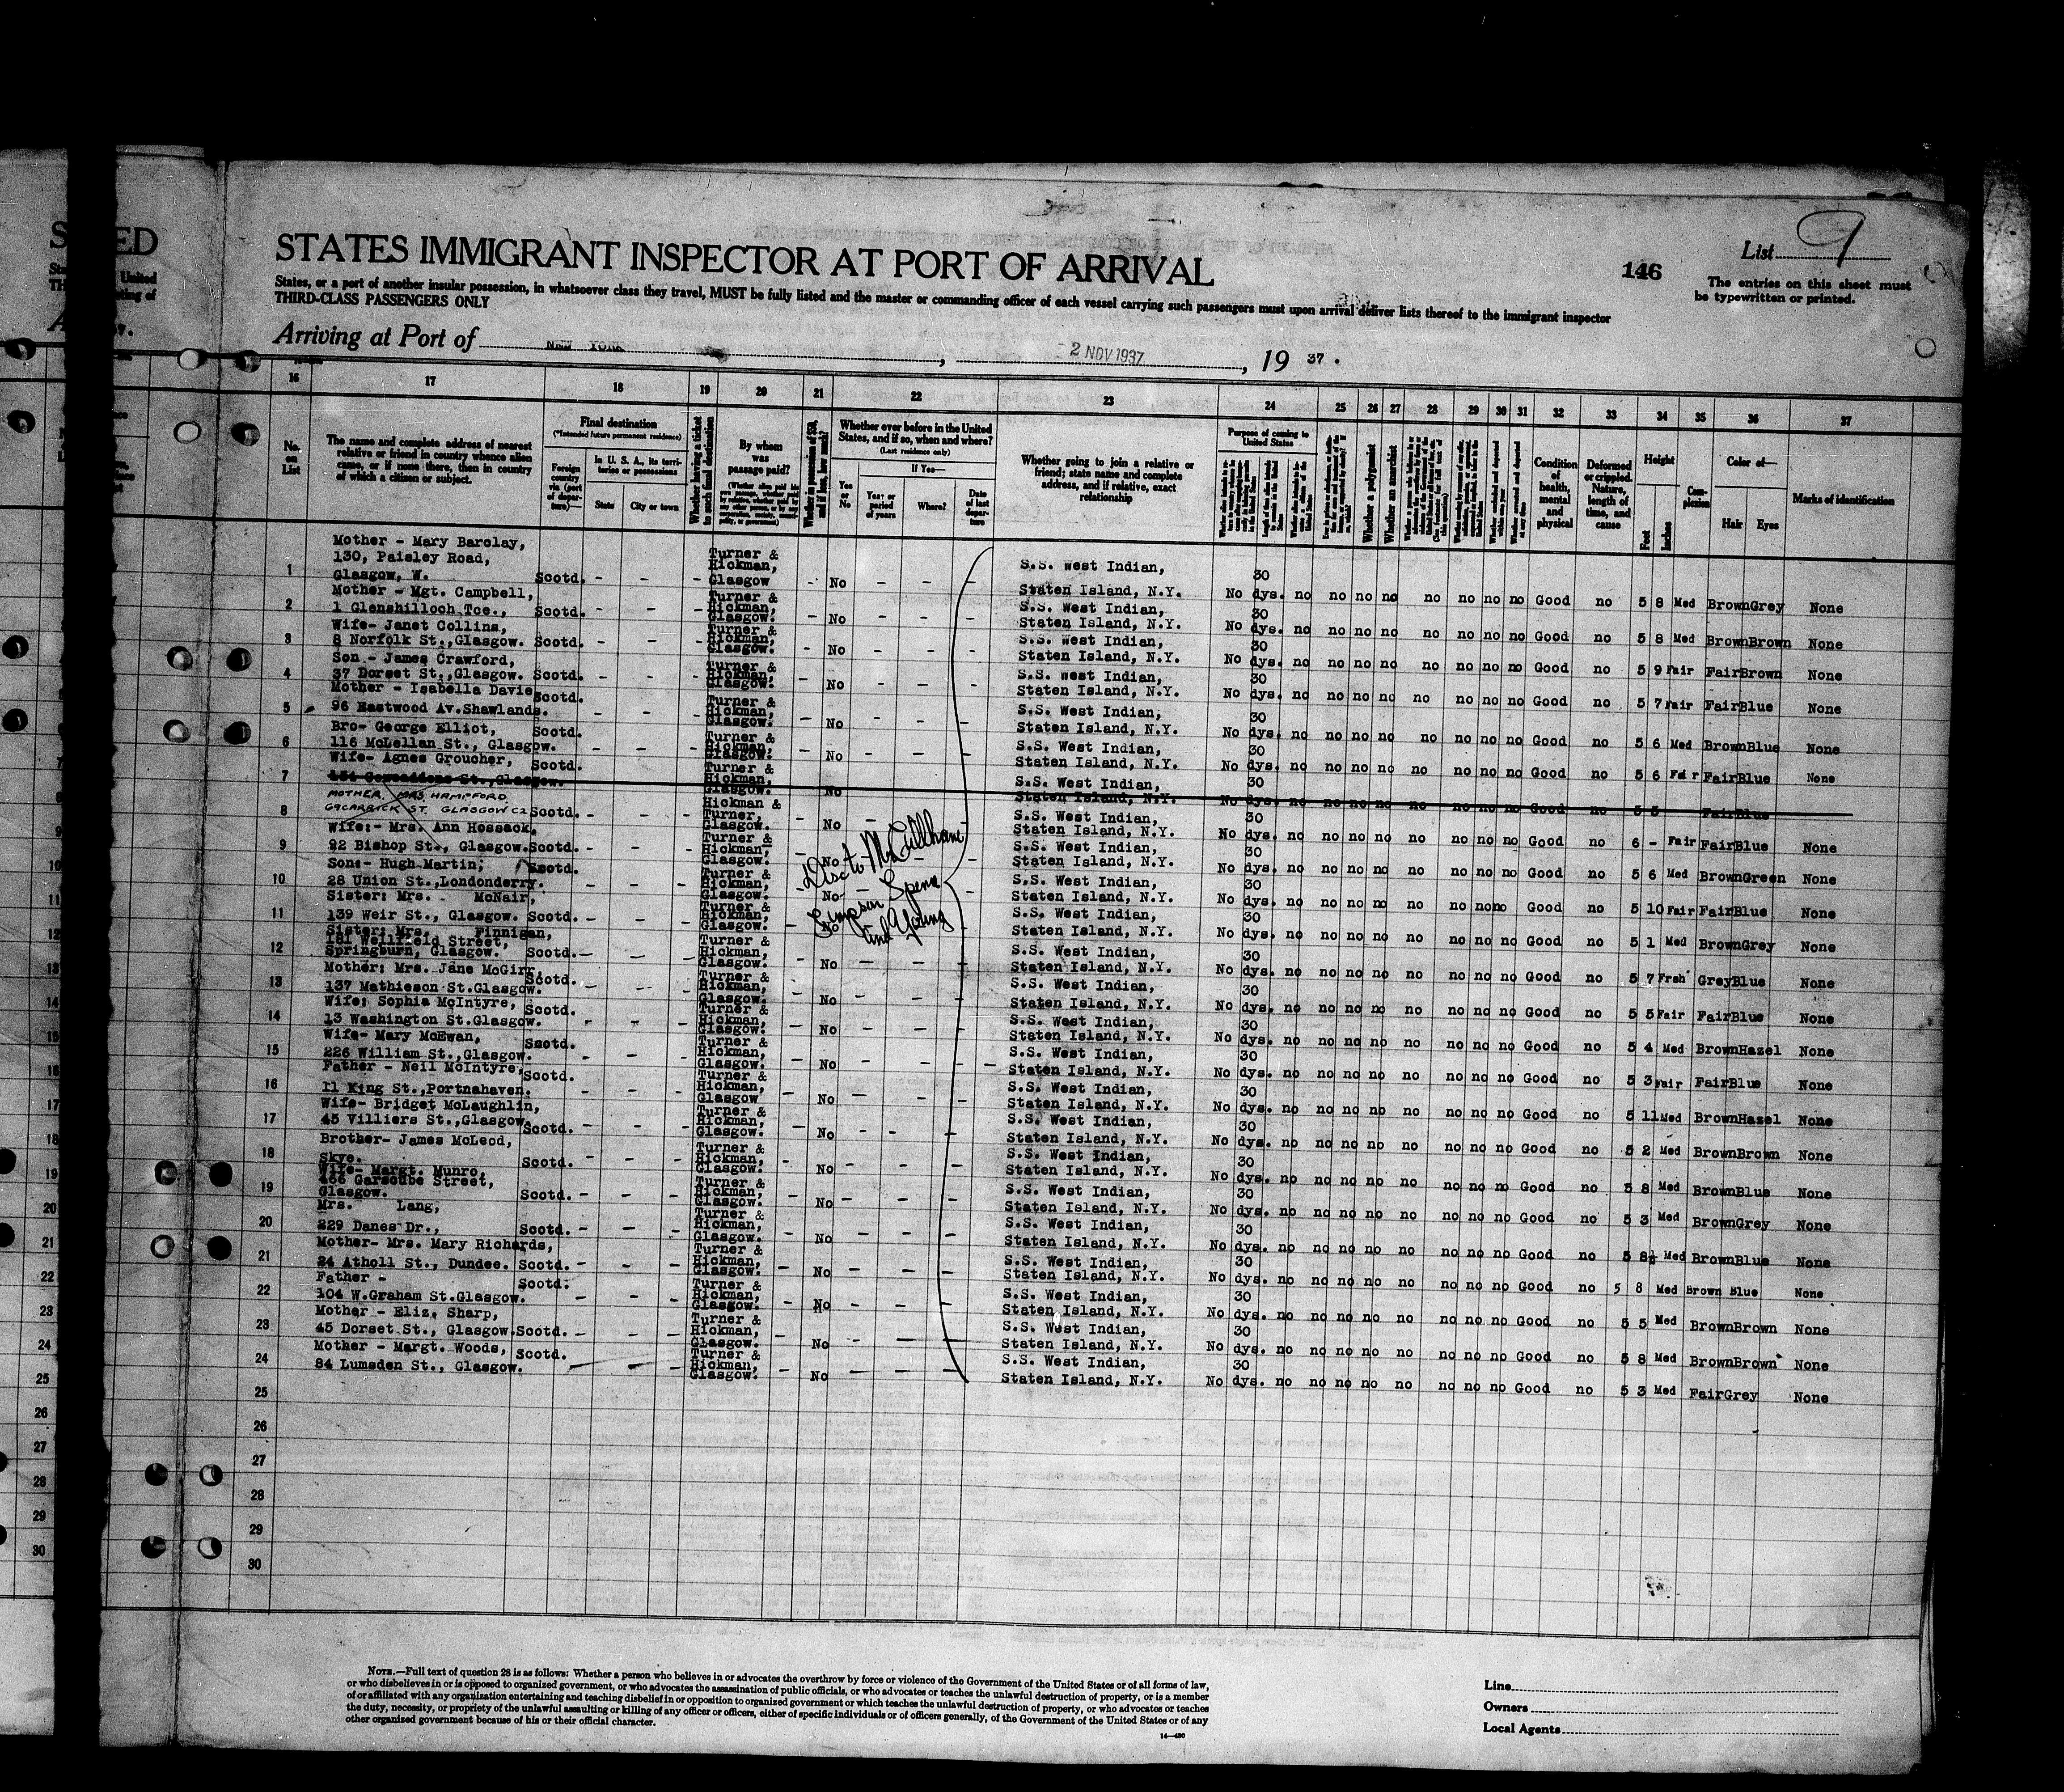 STATES IMMIGRANT INSPECTOR AT PORT OF ARRIVAL
146
List 9
The entries on this sheet must
be typewritten or printed.
States, or a port of another insular possession, in whatsoever class they travel, MUST be fully listed and the master or commanding officer of each vessel carrying such passengers must upon arrival deliver lists thereof to the immigrant inspector
THIRD-CLASS PASSENGERS ONLY
Arriving at Port of NEW YORK , 2 NOV 1937 , 19 37 .
16 17 18 19 20 21 22 23 24 25 26 27 28 29 30 31 32 33 34 35 36 37
No. on List
The name and complete address of nearest relative or friend in country whence alien came, or if none there, then in country of which a citizen or subject.
Final destination
(*Intended future permanent residence)
Foreign country via (port of departure)—
In U. S. A., its territories or possessions
State
City or town
Whether having a ticket to such final destination
By whom was passage paid?
Whether in possession of $50, and if less, how much?
Whether ever before in the United States, and if so, when and where?
(Last residence only)
Yes or No
If Yes—
Year or period of years
Where?
Date of last departure
Whether going to join a relative or friend; state name and complete address, and if relative, exact relationship
Purpose of coming to United States
Whether a polygamist
Whether an anarchist
Condition of health, mental and physical
Deformed or crippled. Nature, length of time, and cause
Height
Feet
Inches
Complexion
Color of—
Hair
Eyes
Marks of identification
1 Mother - Mary Barclay, 130, Paisley Road, Glasgow, W. Scotd. - - - Turner & Hickman, Glasgow - No - - - S.S. West Indian, Staten Island, N.Y. No 30 dys. no no no no no no no no Good no 5 8 Med Brown Grey None
2 Mother - Mgt. Campbell, 1 Glenshilloch Tce., Scotd. - - - Turner & Hickman, Glasgow. - No - - - S.S. West Indian, Staten Island, N.Y. No 30 dys. no no no no no no no no Good no 5 8 Med Brown Brown None
3 Wife- Janet Collins, 8 Norfolk St., Glasgow. Scotd. - - - Turner & Hickman, Glasgow. - No - - - S.S. West Indian, Staten Island, N.Y. No 30 dys. no no no no no no no no Good no 5 9 Fair Fair Brown None
4 Son - James Crawford, 37 Dorset St., Glasgow. Scotd. - - - Turner & Hickman, Glasgow. - No - - - S.S. west Indian, Staten Island, N.Y. No 30 dys. no no no no no no no no Good no 5 7 Fair Fair Blue None
5 Mother - Isabella Davie 96 Eastwood Av.Shawlands. Scotd. - - - Turner & Hickman, Glasgow. - No - - - S.S. West Indian, Staten Island, N.Y. No 30 dys. no no no no no no no no Good no 5 6 Med Brown Blue None
6 Bro- George Elliot, 116 McLellan St., Glasgow. Scotd. - - - Turner & Hickman, Glasgow. - No - - - S.S. West Indian, Staten Island, N.Y. No 30 dys. no no no no no no no no Good no 5 6 Fair Fair Blue None
7 Wife- Agnes Groucher, St., Glasgow. Scotd. Turner & Hickman, Glasgow. No S.S. West Indian, Staten Island, N.Y. No 30 dys. no no no no no no no no Good no 5 5 Fair Blue
8 MOTHER. MRS HAMPFORD 69 CARRICK ST. GLASGOW C2 Scotd. - - - Hickman & Turner, Glasgow. - No - - - S.S. West Indian, Staten Island, N.Y. No 30 dys. no no no no no no no no Good no 6 - Fair Fair Blue None
9 Wife:- Mrs. Ann Hossack, 92 Bishop St., Glasgow. Scotd. - - - Turner & Hickman, Glasgow. - No S.S. West Indian, Staten Island, N.Y. No 30 dys. no no no no no no no no Good no 5 6 Med Brown Green None
10 Son:- Hugh Martin; 28 Union St., Londonderry. Scotd. - - - Turner & Hickman, Glasgow. - No - - - S.S. West Indian, Staten Island, N.Y. No 30 dys. no no no no no no no no Good no 5 10 Fair Fair Blue None
11 Sister: Mrs. McNair, 139 Weir St., Glasgow. Scotd. - - - Turner & Hickman, Glasgow. - No S.S. West Indian, Staten Island, N.Y. No 30 dys. no no no no no no no no Good no 5 1 Med Brown Grey None
12 Sister: Mrs. Finnigan, 181 Wellfield Street, Springburn, Glasgow. Scotd. - - - Turner & Hickman, Glasgow. - No - - - S.S. West Indian, Staten Island, N.Y. No 30 dys. no no no no no no no no Good no 5 7 Fresh Grey Blue None
13 Mother: Mrs. Jane McGirr, 137 Mathieson St.Glasgow. Scotd. - - - Turner & Hickman, Glasgow. - No - - - S.S. West Indian, Staten Island, N.Y. No 30 dys. no no no no no no no no Good no 5 5 Fair Fair Blue None
14 Wife: Sophia McIntyre, 13 Washington St.Glasgow. Scotd. - - - Turner & Hickman, Glasgow. - No - - - S.S. West Indian, Staten Island, N.Y. No 30 dys. no no no no no no no no Good no 5 4 Med Brown Hazel None
15 Wife- Mary McEwan, 226 William St., Glasgow. Scotd. - - - Turner & Hickman, Glasgow. - No - - - S.S. West Indian, Staten Island, N.Y. No 30 dys. no no no no no no no no Good no 5 3 Fair Fair Blue None
16 Father - Neil McIntyre, 11 King St., Portnahaven. Scotd. - - - Turner & Hickman, Glasgow - No - - - S.S. West Indian, Staten Island, N.Y. No 30 dys. no no no no no no no no Good no 5 11 Med Brown Hazel None
17 Wife- Bridget McLaughlin, 45 Villiers St., Glasgow. Scotd. - - - Turner & Hickman, Glasgow. - No - - - S.S. West Indian, Staten Island, N.Y. No 30 dys. no no no no no no no no Good no 5 2 Med Brown Brown None
18 Brother- James McLeod, Skye. Scotd. - - - Turner & Hickman, Glasgow. - No - - - S.S. West Indian, Staten Island, N.Y. No 30 dys. no no no no no no no no Good no 5 8 Med Brown Blue None
19 Wife- Margt. Munro, 466 Garscube Street, Glasgow. Scotd. - - - Turner & Hickman, Glasgow. - No - - - S.S. West Indian, Staten Island, N.Y. No 30 dys. no no no no no no no no Good no 5 3 Med Brown Grey None
20 Mrs. Lang, 229 Danes Dr., Scotd. - - - Turner & Hickman, Glasgow. - No - - - S.S. West Indian, Staten Island, N.Y. No 30 dys. no no no no no no no no Good no 5 8½ Med Brown Blue None
21 Mother- Mrs. Mary Richards, 24 Atholl St., Dundee. Scotd. - - - Turner & Hickman, Glasgow. - No - - - S.S. West Indian, Staten Island, N.Y. No 30 dys. no no no no no no no no Good no 5 8 Med Brown Blue None
22 Father - 104 W.Graham St.Glasgow. Scotd. - - - Turner & Hickman, Glasgow. - No - - - S.S. West Indian, Staten Island, N.Y. No 30 dys. no no no no no no no no Good no 5 5 Med Brown Brown None
23 Mother - Eliz. Sharp, 45 Dorset St., Glasgow. Scotd. - - - Turner & Hickman, Glasgow. - No - - - S.S. West Indian, Staten Island, N.Y. No 30 dys. no no no no no no no no Good no 5 8 Med Brown Brown None
24 Mother - Margt. Woods, 84 Lumsden St., Glasgow. Scotd. - - - Turner & Hickman, Glasgow. - No - - - S.S. West Indian, Staten Island, N.Y. No 30 dys. no no no no no no no no Good no 5 3 Med Fair Grey None
25
26
27
28
29
30
Disc to McGillham
Simpson Spence
and Young
NOTE.—Full text of question 28 is as follows: Whether a person who believes in or advocates the overthrow by force or violence of the Government of the United States or of all forms of law,
or who disbelieves in or is opposed to organized government, or who advocates the assassination of public officials, or who advocates or teaches the unlawful destruction of property, or is a member
of or affiliated with any organization entertaining and teaching disbelief in or opposition to organized government or which teaches the unlawful destruction of property, or who advocates or teaches
the duty, necessity, or propriety of the unlawful assaulting or killing of any officer or officers, either of specific individuals or of officers generally, of the Government of the United States or of any
other organized government because of his or their official character.
14—430
Line
Owners
Local Agents